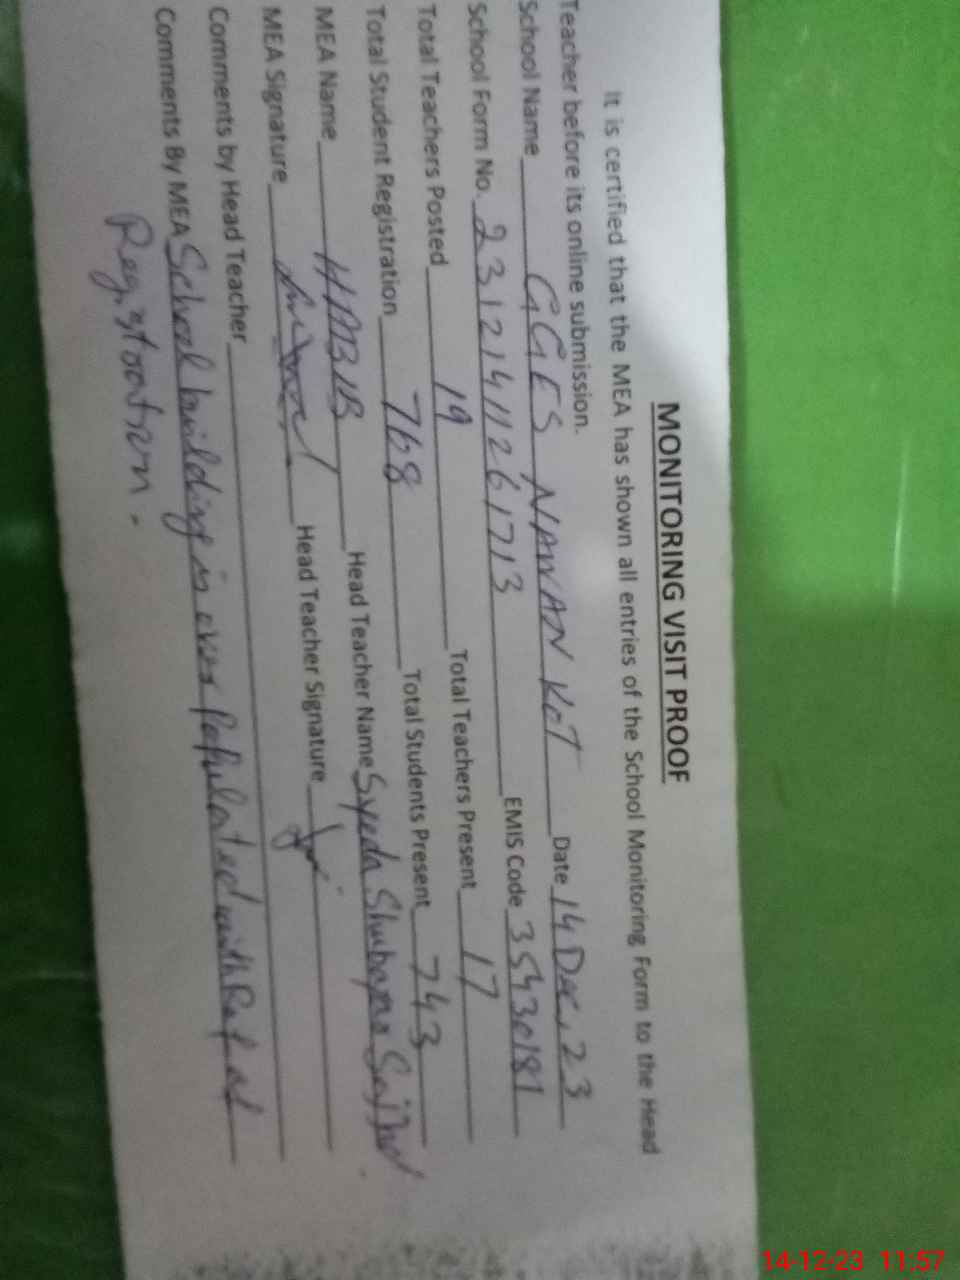 MONITORING VISIT PROOF
It is certified that the MEA has shown all entries of the School Monitoring Form to the Head
Teacher before its online submission.
School Name GGES NAWAN KOT Date 14 Dec, 23
School Form No. 23121411261713 EMIS Code 35430181
Total Teachers Posted 19 Total Teachers Present 17
Total Student Registration 768 Total Students Present 743
MEA Name HABIB Head Teacher Name Syeda
MEA Signature Head Teacher Signature
Comments by Head Teacher
Comments By MEA School building is over Populated with Ref of
Registration.
14-12-23 11:57